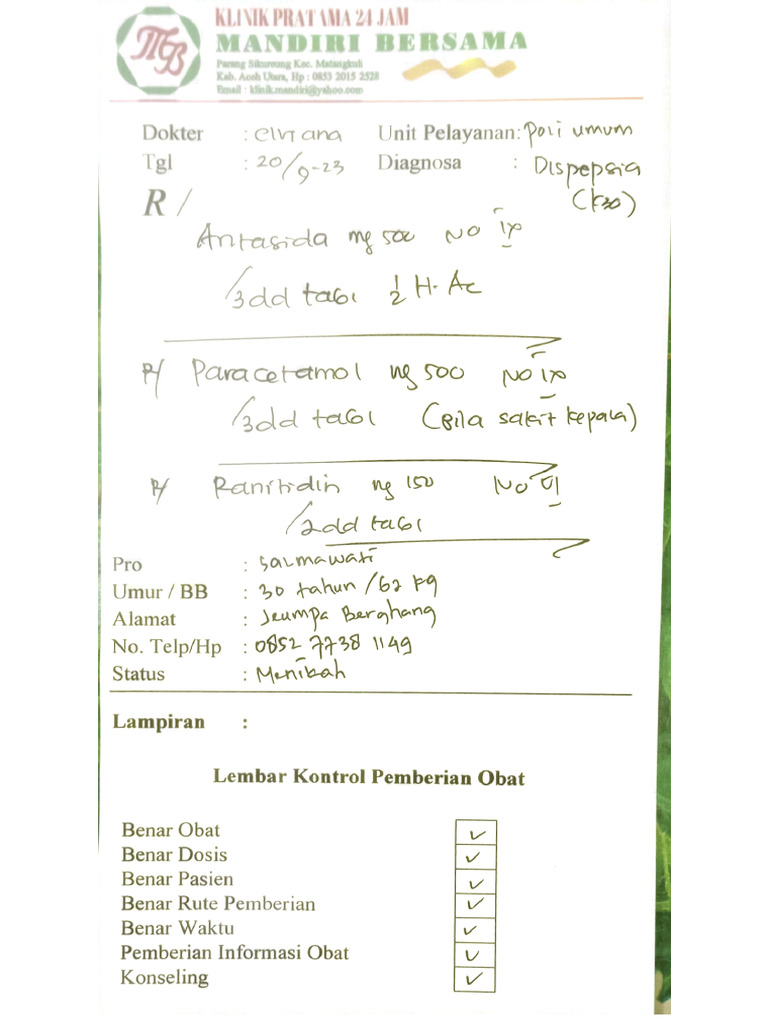 MB
KLINIK PRATAMA 24 JAM
MANDIRI BERSAMA
Parang Sikureung Kec. Matangkuli
Kab. Aceh Utara, Hp : 0853 2015 2528
Email : klinik.mandiri@yahoo.com
Dokter : elviana Unit Pelayanan: Poli umum
Tgl : 20/9-23 Diagnosa : Dispepsia
R/ (K30)
Antasida mg 500 No IX
/3dd tab1 ½ H. Ac
R/ Paracetamol mg 500 No IX
/3dd tab1 (Bila sakit kepala)
R/ Ranitidin mg 150 No VI
/2dd tab1
Pro : Salmawati
Umur / BB : 30 tahun /62 kg
Alamat : Jeumpa Berghang
No. Telp/Hp : 0852 7738 1149
Status : Menikah
Lampiran :
Lembar Kontrol Pemberian Obat
Benar Obat ✓
Benar Dosis ✓
Benar Pasien ✓
Benar Rute Pemberian ✓
Benar Waktu ✓
Pemberian Informasi Obat ✓
Konseling ✓